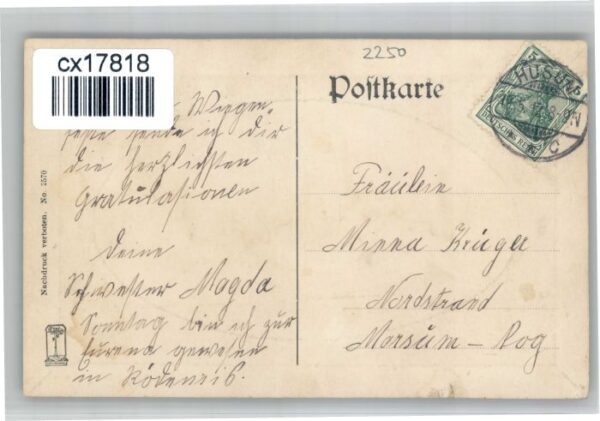 cx17818
2250
Postkarte
HUSUM
DEUTSCHES REICH
Wiegen
feste sende ich dir
die herzlichsten
Gratulasionen
Deine
Schwester Magda
Sonntag bin ich zur
gewesen
in Rödemis.
Fräulein
Minna Krüger
Nordstrand
Morsum - Kog
Nachdruck verboten. No. 2570